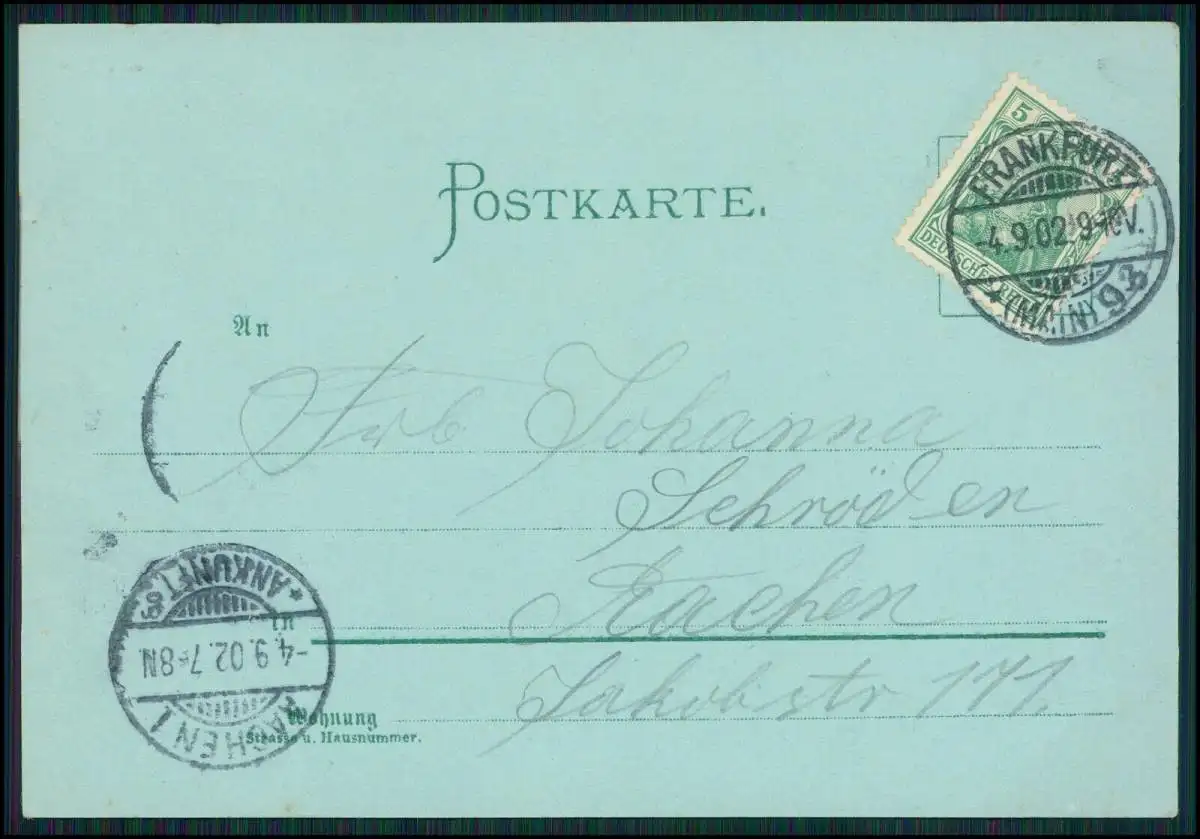 POSTKARTE.
5
DEUTSCHES REICH
FRANKFURT
-4.9.02.9-10V.
* (MAIN) 93
An
Frl. Johanna
Schröden
Aachen
in
Jakobstr 171.
Wohnung
Strasse u. Hausnummer.
AACHEN 1
-4.9.02.7-8N
* ANKUNFT